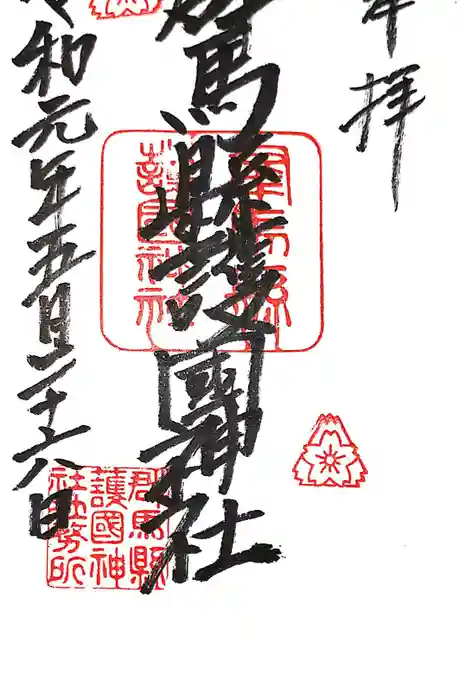 奉拝
群馬縣護國神社
令和元年五月二十六日
群馬縣
護國神社
群馬縣
護國神
社社務所